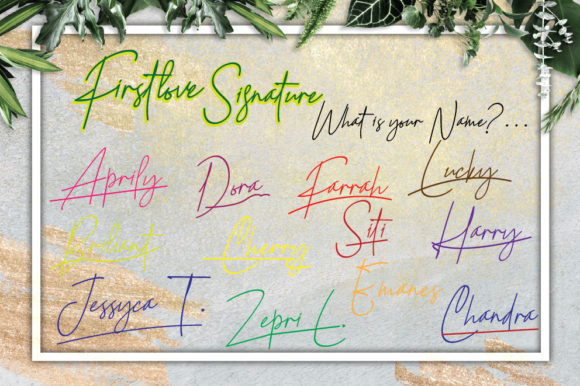 Firstlove Signature
What is your Name?...
Aprily Dora Farrah Lucky
Briliant Cherry Siti Harry
Jessyca T. Zepri L. Emanes Chandra